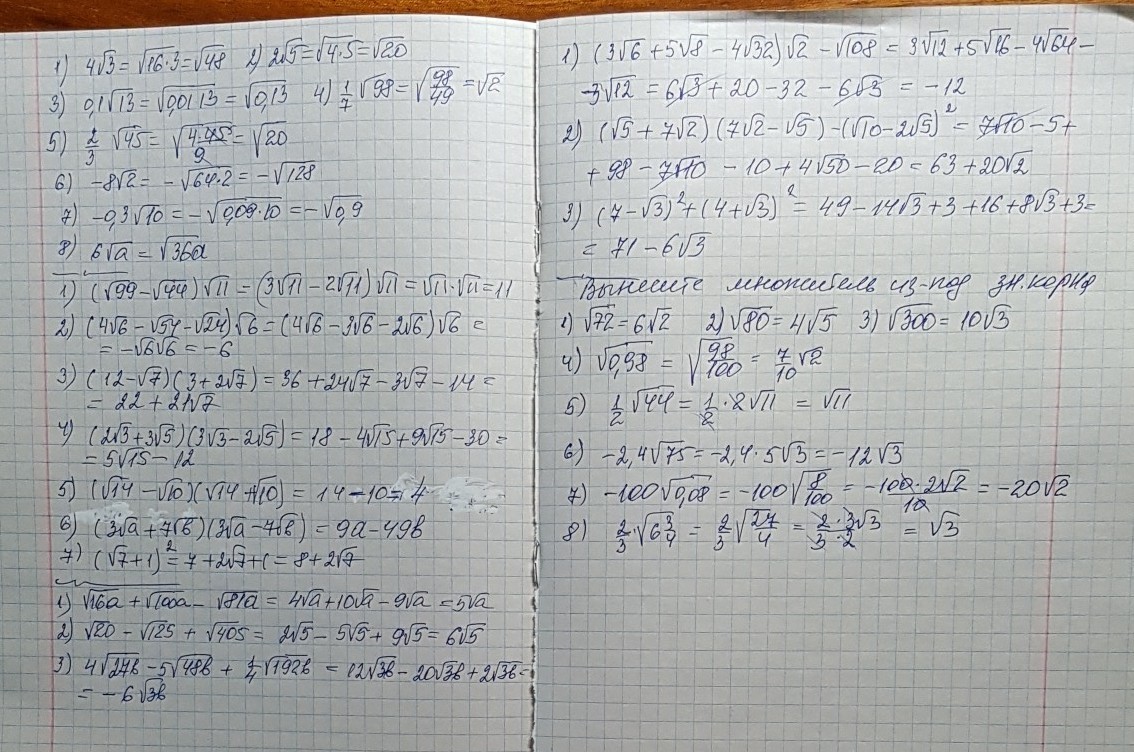 1) 4√3 = √16·3 = √48 2) 2√5 = √4·5 = √20
3) 0,1√13 = √0,01·13 = √0,13 4) 1/7 √98 = √98/49 = √2
5) 2/3 √45 = √4·45/9 = √20
6) -8√2 = -√64·2 = -√128
7) -0,3√10 = -√0,09·10 = -√0,9
8) 6√a = √36a
1) (√99 - √44)√11 = (3√11 - 2√11)√11 = √11·√11 = 11
2) (4√6 - √54 - √24)√6 = (4√6 - 3√6 - 2√6)√6 =
= -√6√6 = -6
3) (12-√7)(3+2√7) = 36 + 24√7 - 3√7 - 14 =
= 22 + 21√7
4) (2√3+3√5)(3√3-2√5) = 18 - 4√15 + 9√15 - 30 =
= 5√15 - 12
5) (√14 - √10)(√14 + √10) = 14 - 10 = 4
6) (3√a + 7√b)(3√a - 7√b) = 9a - 49b
7) (√7+1)² = 7 + 2√7 + 1 = 8 + 2√7
1) √16a + √100a - √81a = 4√a + 10√a - 9√a = 5√a
2) √20 - √125 + √405 = 2√5 - 5√5 + 9√5 = 6√5
3) 4√27b - 5√48b + 1/4√192b = 12√3b - 20√3b + 2√3b =
= -6√3b
1) (3√6 + 5√8 - 4√32)√2 - √108 = 3√12 + 5√16 - 4√64 -
- 3√12 = 6√3 + 20 - 32 - 6√3 = -12
2) (√5 + 7√2)(7√2 - √5) - (√10 - 2√5)² = 7√10 - 5 +
+ 98 - 7√10 - 10 + 4√50 - 20 = 63 + 20√2
3) (7-√3)² + (4+√3)² = 49 - 14√3 + 3 + 16 + 8√3 + 3 =
= 71 - 6√3
Вынесите множитель из-под зн. корня
1) √72 = 6√2 2) √80 = 4√5 3) √300 = 10√3
4) √0,98 = √98/100 = 7/10 √2
5) 1/2 √44 = 1/2 · 2√11 = √11
6) -2,4√75 = -2,4·5√3 = -12√3
7) -100√0,08 = -100√8/100 = -100·2√2/10 = -20√2
8) 2/3 · √6 3/4 = 2/3 √27/4 = 2·3√3/3·2 = √3